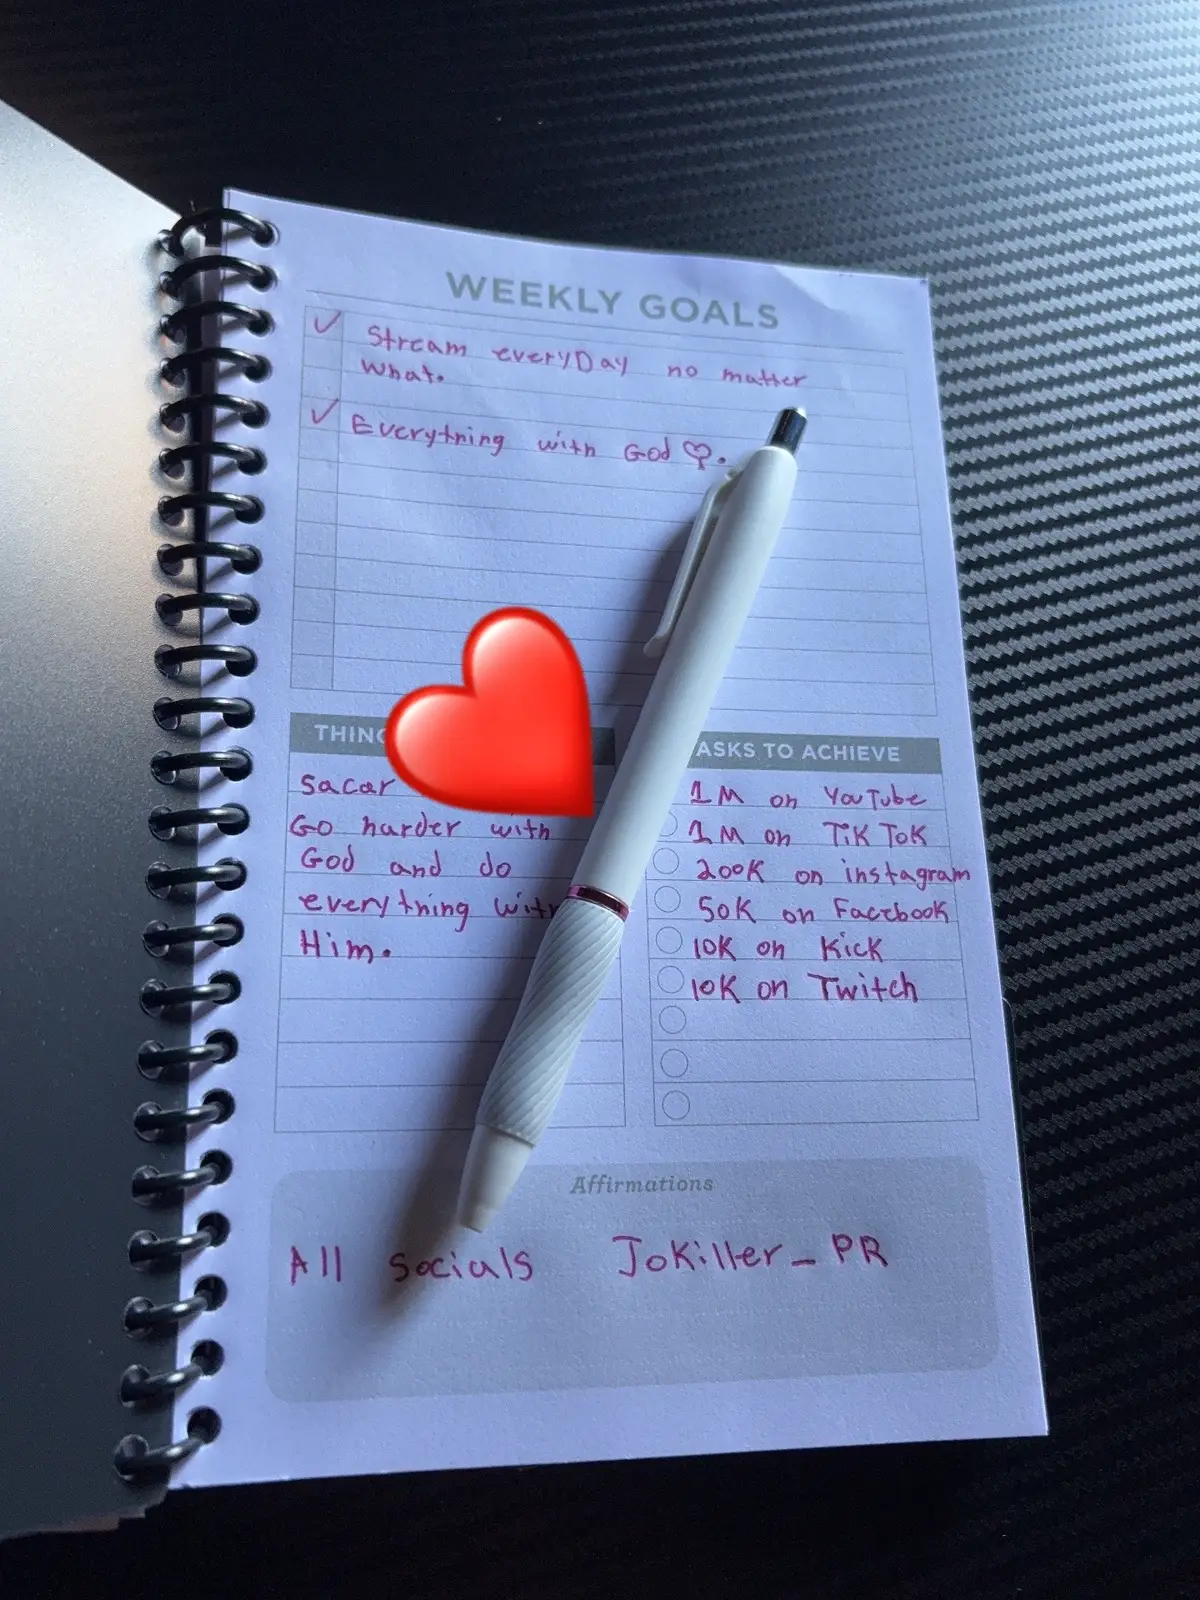 WEEKLY GOALS
✓ Stream everyDay no matter
what.
✓ Everything with God ♡.
Sacar
Go harder with
God and do
everything with
Him.
TASKS TO ACHIEVE
1M on YouTube
1M on TikTok
200K on instagram
50K on Facebook
10K on Kick
10K on Twitch
Affirmations
All socials JoKiller_PR